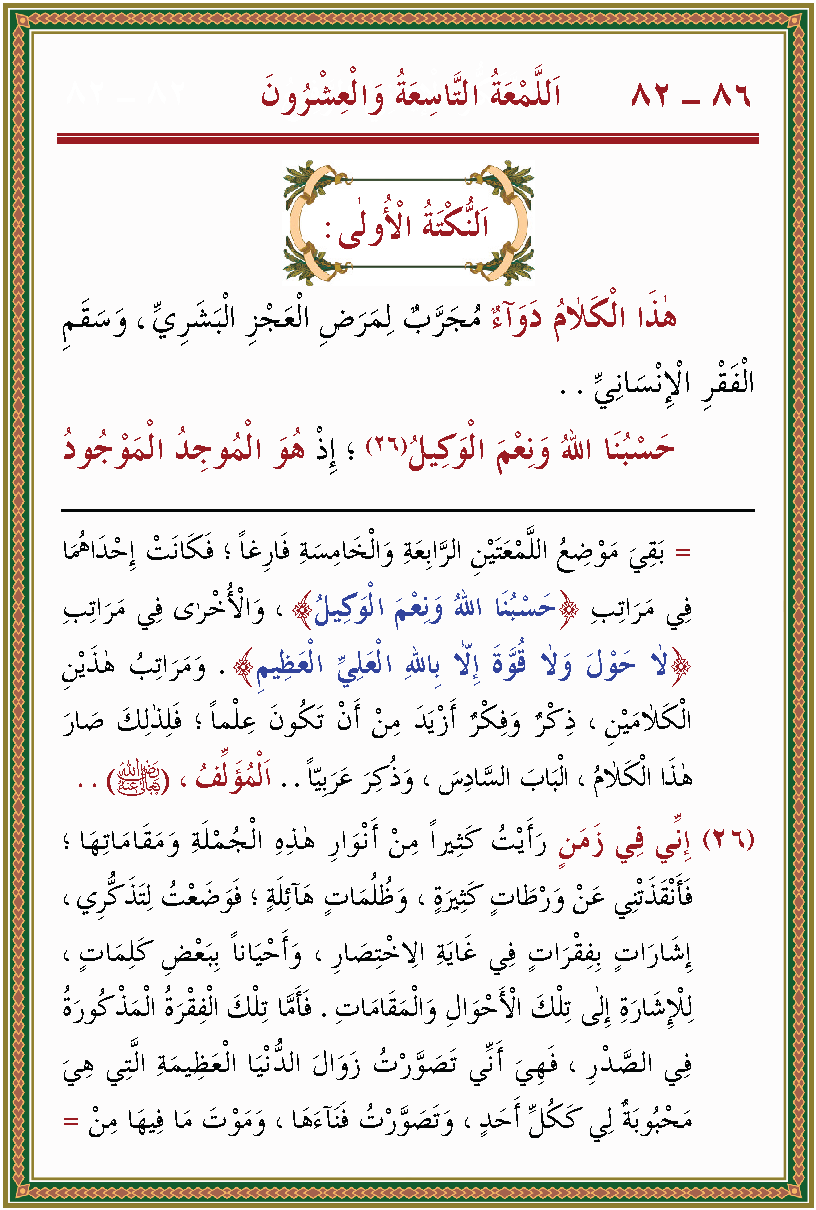 ٨٦ – ٨٢ اَللَّمْعَةُ التَّاسِعَةُ وَالْعِشْرُونَ
اَلنُّكْتَةُ الْأُولٰى :
هٰذَا الْكَلاٰمُ دَوَآءٌ مُجَرَّبٌ لِمَرَضِ الْعَجْزِ الْبَشَرِيِّ ، وَسَقَمِ
الْفَقْرِ الْإِنْسَانِيِّ . .
حَسْبُنَا اللهُ وَنِعْمَ الْوَكِيلُ(٢٦) ؛ إِذْ هُوَ الْمُوجِدُ الْمَوْجُودُ
= بَقِيَ مَوْضِعُ اللَّمْعَتَيْنِ الرَّابِعَةِ وَالْخَامِسَةِ فَارِغاً ؛ فَكَانَتْ إِحْدَاهُمَا
فِي مَرَاتِبِ ﴿حَسْبُنَا اللهُ وَنِعْمَ الْوَكِيلُ﴾ ، وَالْأُخْرٰى فِي مَرَاتِبِ
﴿لاٰ حَوْلَ وَلاٰ قُوَّةَ إِلاّٰ بِاللهِ الْعَلِيِّ الْعَظِيمِ﴾ . وَمَرَاتِبُ هٰذَيْنِ
الْكَلاٰمَيْنِ ، ذِكْرٌ وَفِكْرٌ أَزْيَدَ مِنْ أَنْ تَكُونَ عِلْماً ؛ فَلِذٰلِكَ صَارَ
هٰذَا الْكَلاٰمُ ، الْبَابَ السَّادِسَ ، وَذُكِرَ عَرَبِيّاً . . اَلْمُؤَلِّفُ ، (رضي الله تعالى عنه) . .
(٢٦) إِنِّي فِي زَمَنٍ رَأَيْتُ كَثِيراً مِنْ أَنْوَارِ هٰذِهِ الْجُمْلَةِ وَمَقَامَاتِهَا ؛
فَأَنْقَذَتْنِي عَنْ وَرْطَاتٍ كَثِيرَةٍ ، وَظُلُمَاتٍ هَآئِلَةٍ ؛ فَوَضَعْتُ لِتَذَكُّرِي ،
إِشَارَاتٍ بِفِقْرَاتٍ فِي غَايَةِ الِاخْتِصَارِ ، وَأَحْيَاناً بِبَعْضِ كَلِمَاتٍ ،
لِلْإِشَارَةِ إِلٰى تِلْكَ الْأَحْوَالِ وَالْمَقَامَاتِ . فَأَمَّا تِلْكَ الْفِقْرَةُ الْمَذْكُورَةُ
فِي الصَّدْرِ ، فَهِيَ أَنِّي تَصَوَّرْتُ زَوَالَ الدُّنْيَا الْعَظِيمَةِ الَّتِي هِيَ
مَحْبُوبَةٌ لِي كَكُلِّ أَحَدٍ ، وَتَصَوَّرْتُ فَنَآءَهَا ، وَمَوْتَ مَا فِيهَا مِنْ =